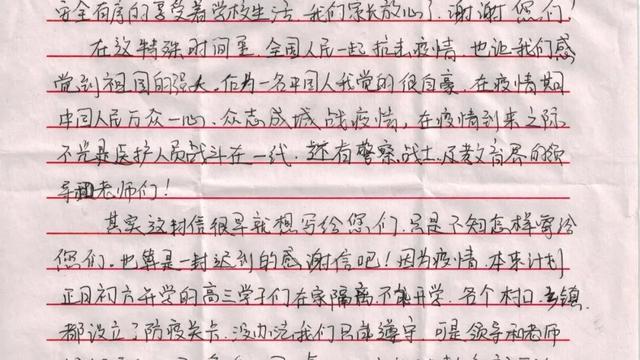 安全有序的享受着学校生活，我们家长放心了，谢谢您们！
在这特殊时间里，全国人民一起抗击疫情，也让我们感
觉到祖国的强大，作为一名中国人我觉的很自豪，在疫情期
中国人民万众一心，众志成城战疫情，在疫情到来之际
不光是医护人员战斗在一线，还有警察，战士，及教育界的领
导和老师们！
其实这封信很早就想写给您们，只是不知怎样写给
您们，也算是一封迟到的感谢信吧！因为疫情，本来计划
正月初六开学的高三学子们在家隔离不能开学，各个村口，乡镇，
都设立了防疫关卡，没办法我们只能遵守，可是领导和老师